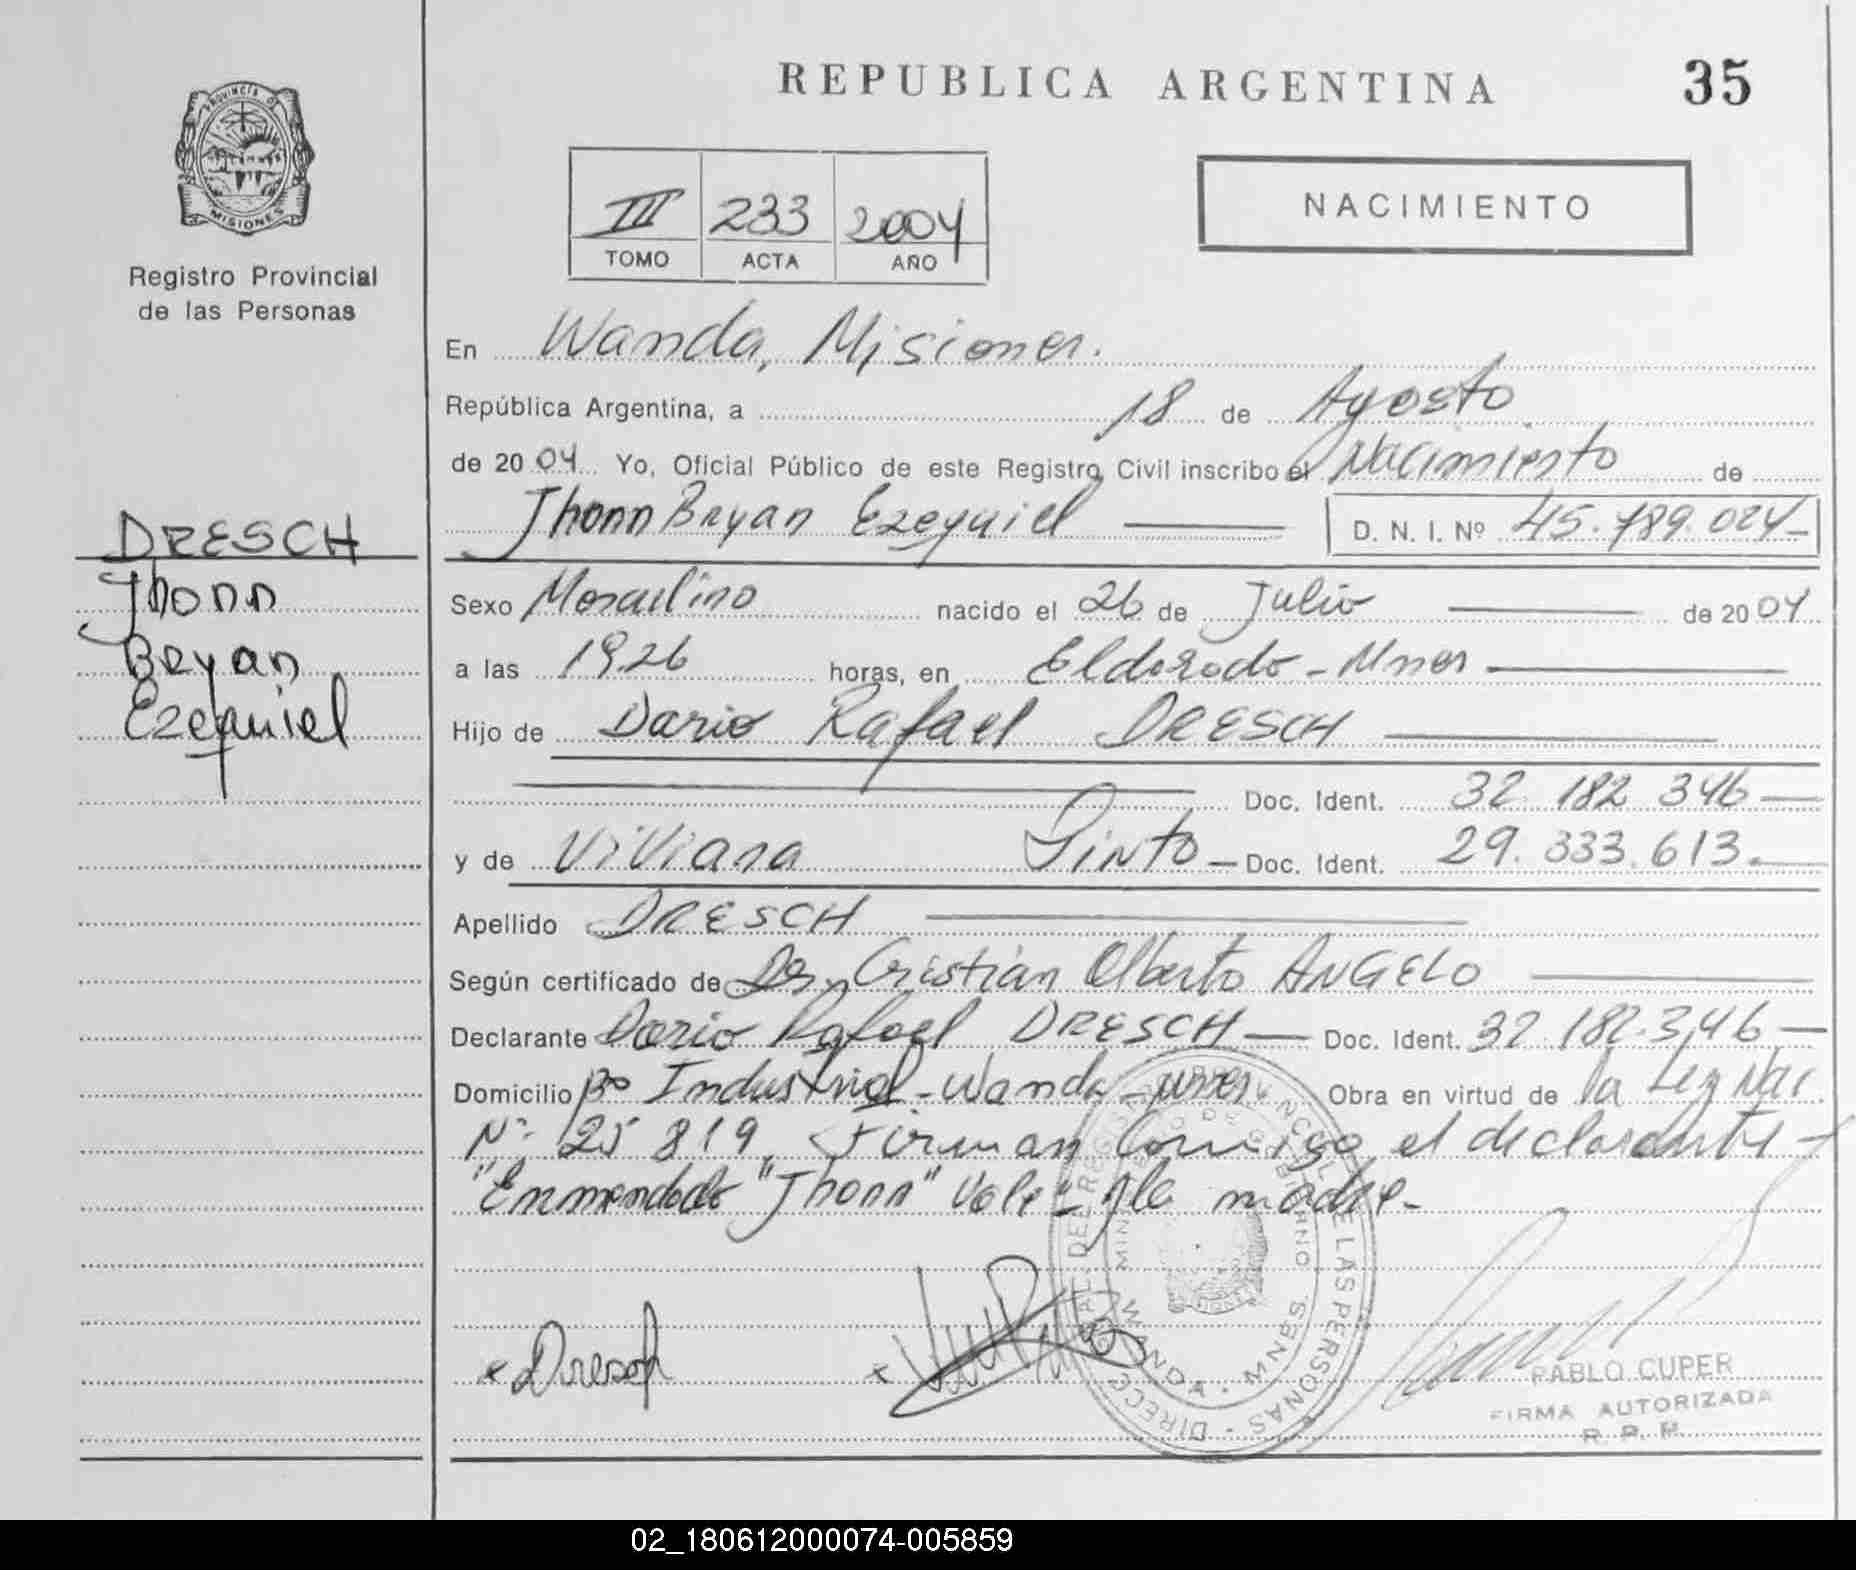 REPUBLICA ARGENTINA
35
PROVINCIA DE
MISIONES
Registro Provincial
de las Personas
III 233 2004
TOMO ACTA AÑO
NACIMIENTO
En Wanda, Misiones.
República Argentina, a 18 de Agosto
de 2004 Yo, Oficial Público de este Registro Civil inscribo el Nacimiento de
Jhonn Bryan Ezequiel D. N. I. Nº 45.789.024
DRESCH
Jhonn
Bryan
Ezequiel
Sexo Masculino nacido el 26 de Julio de 2004
a las 19.26 horas, en Eldorado - Mnes
Hijo de Dario Rafael DRESCH
Doc. Ident. 32.182.346
y de Viviana Pinto Doc. Ident. 29.333.613.
Apellido DRESCH
Según certificado de Dr. Cristian Alberto ANGELO
Declarante Dario Rafael DRESCH Doc. Ident. 32.182.346
Domicilio Bº Industrial - Wanda - Mnes Obra en virtud de la Ley Nac.
Nº 25 819, Firman Conmigo el declarante
"Enmendado "Jhonn" Vale" y la madre -
x Dresch x
PABLO CUPER
FIRMA AUTORIZADA
R. P. P.
WANDA - MNES.
02_180612000074-005859